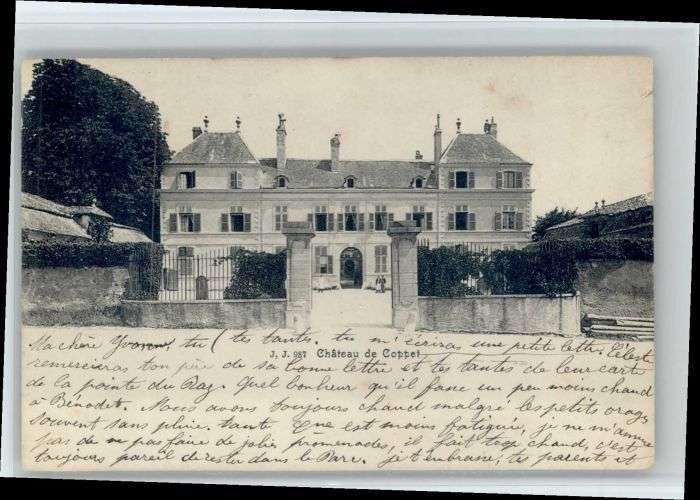 Ma chère Yvonne, tu (tes tantes. tu m'écriras une petite lettre. C'est
J. J. 987 Château de Coppet
remercieras ton père de sa bonne lettre et tes tantes de leur carte
de la pointe du Raz. Quel bonheur qu'il fasse un peu moins chaud
à Bénodet. Nous avons toujours chaud malgré les petits orages
souvent sans pluie. tante est moins fatiguée, je ne m'amuse
pas de ne pas faire de jolies promenades, il fait trop chaud, c'est
toujours pareil de rester dans le Parc. je t'embrasse, tes parents et